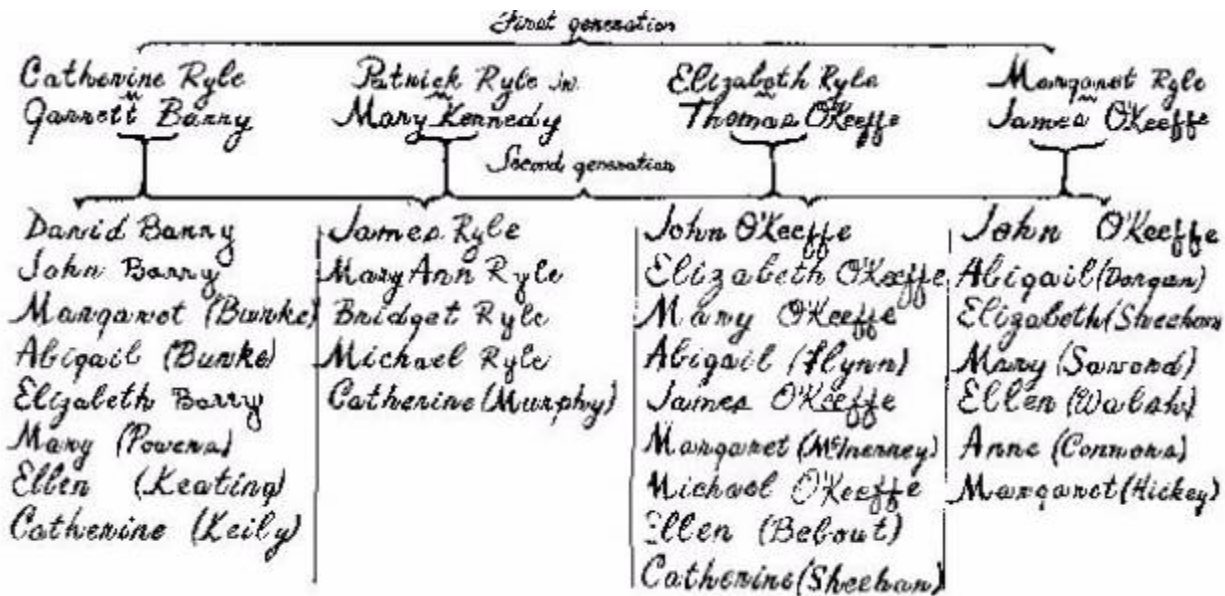 First generation
Catherine Ryle
Garrett Barry
Patrick Ryle Jr.
Mary Kennedy
Elizabeth Ryle
Thomas O'Keeffe
Margaret Ryle
James O'Keeffe
Second generation
David Barry
John Barry
Margaret (Burke)
Abigail (Burke)
Elizabeth Barry
Mary (Powers)
Ellen (Keating)
Catherine (Keily)
James Ryle
Mary Ann Ryle
Bridget Ryle
Michael Ryle
Catherine (Murphy)
John O'Keeffe
Elizabeth O'Keeffe
Mary O'Keeffe
Abigail (Flynn)
James O'Keeffe
Margaret (McInerney)
Michael O'Keeffe
Ellen (Bebout)
Catherine (Sheehan)
John O'Keeffe
Abigail (Dorgan)
Elizabeth (Sheehan)
Mary
Ellen (Walsh)
Anne (Connors)
Margaret (Hickey)